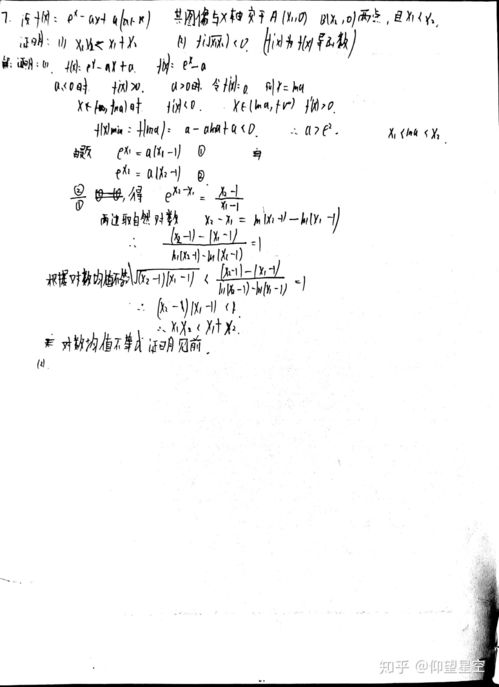 7. 设f(x)= e^x - ax + a (a∈R) 其图像与x轴交于A(x₁,0) B(x₂,0)两点，且x₁<x₂.
证明: (1) x₁x₂ < x₁+x₂ (2) f'(√(x₁x₂)) < 0. (f'(x)为f(x)导函数)
解: 证明: (1). f(x)= e^x - ax + a f'(x)= e^x - a
a<0时 f'(x)>0. a>0时 令f'(x)=0 则x=lna
x∈(-∞, lna)时 f'(x)<0. x∈(lna, +∞) f'(x)>0.
f(x)min = f(lna) = a - alna + a < 0. ∴ a>e². x₁<lna<x₂
e^x₁ = a(x₁-1) ①
e^x₂ = a(x₂-1) ②
②/① 得 e^(x₂-x₁) = (x₂-1)/(x₁-1)
两边取自然对数 x₂-x₁ = ln(x₂-1) - ln(x₁-1)
∴ ((x₂-1)-(x₁-1))/(ln(x₂-1)-ln(x₁-1)) = 1
根据对数均值不等 √((x₂-1)(x₁-1)) < ((x₂-1)-(x₁-1))/(ln(x₂-1)-ln(x₁-1)) = 1
∴ (x₂-1)(x₁-1) < 1.
∴ x₁x₂ < x₁+x₂.
对数均值不等式证明见前.
(2).
知乎 @仰望星空